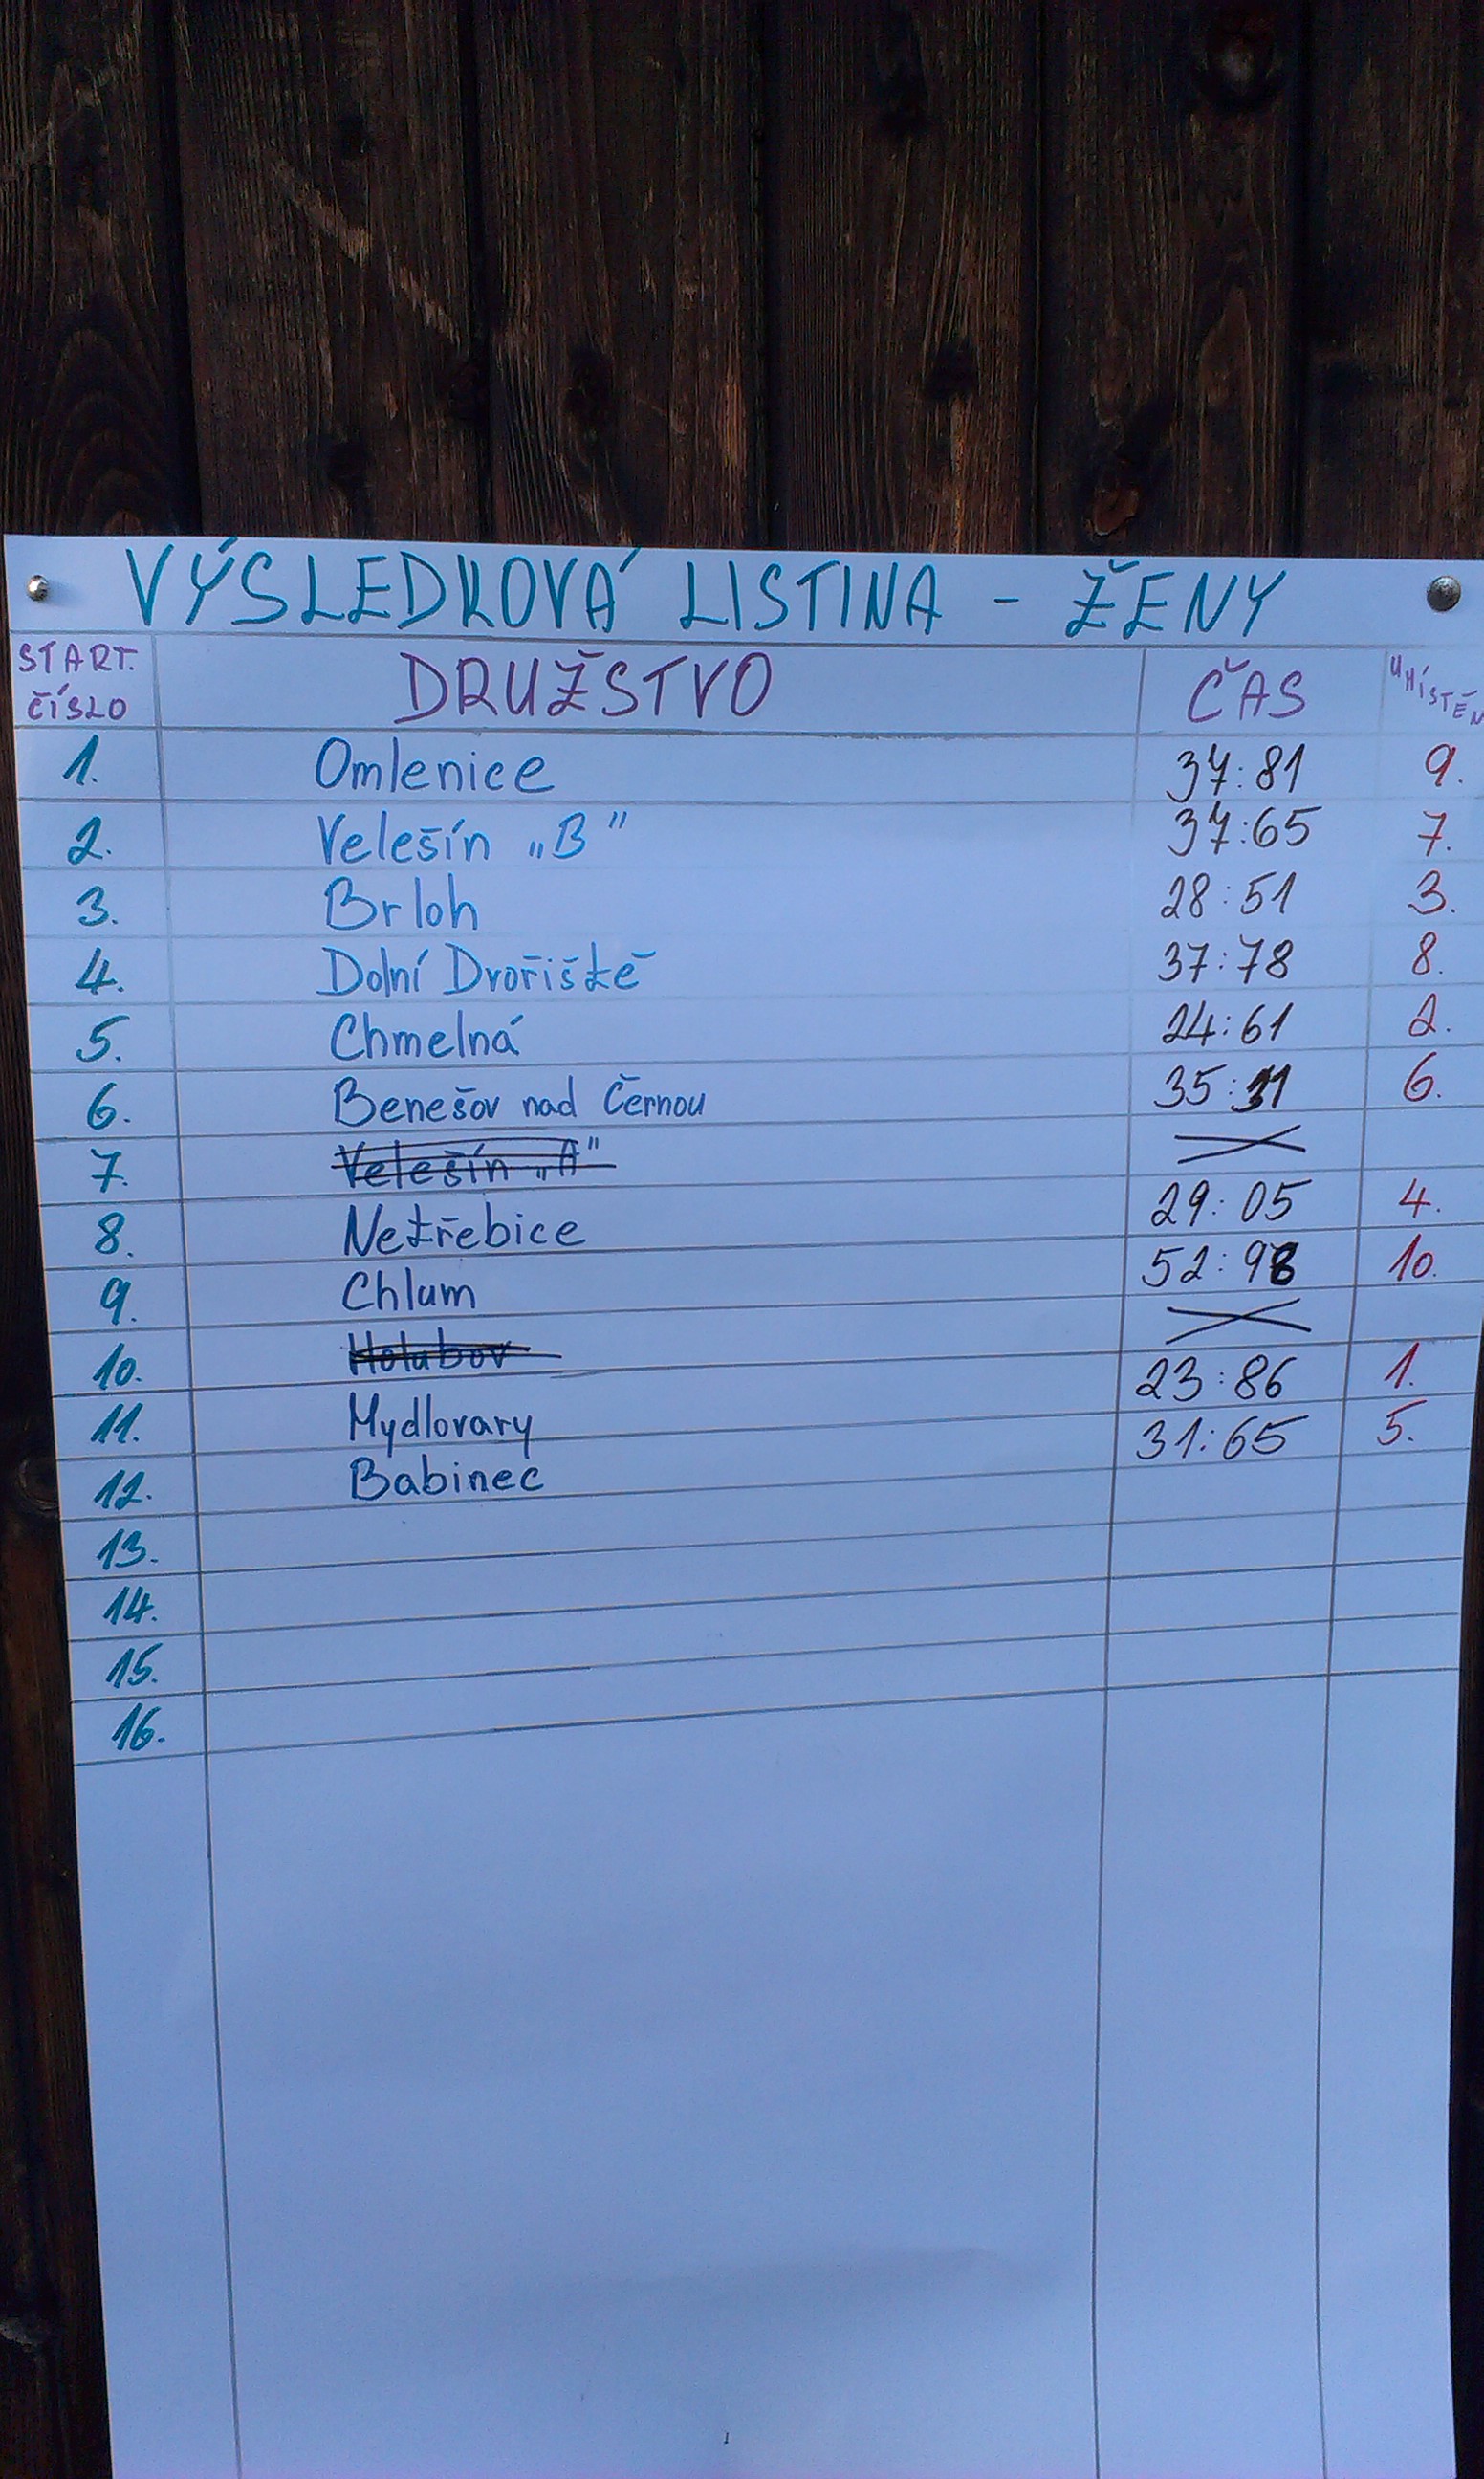 VÝSLEDKOVÁ LISTINA - ŽENY
START. ČÍSLO DRUŽSTVO ČAS UMÍSTĚN
1. Omlenice 37:81 9.
2. Velešín „B" 37:65 7.
3. Brloh 28:51 3.
4. Dolní Dvořiště 37:78 8.
5. Chmelná 24:61 2.
6. Benešov nad Černou 35:31 6.
7. Velešín „A"
8. Netřebice 29:05 4.
9. Chlum 52:98 10.
10. Holubov
11. Mydlovary 23:86 1.
12. Babinec 31:65 5.
13.
14.
15.
16.